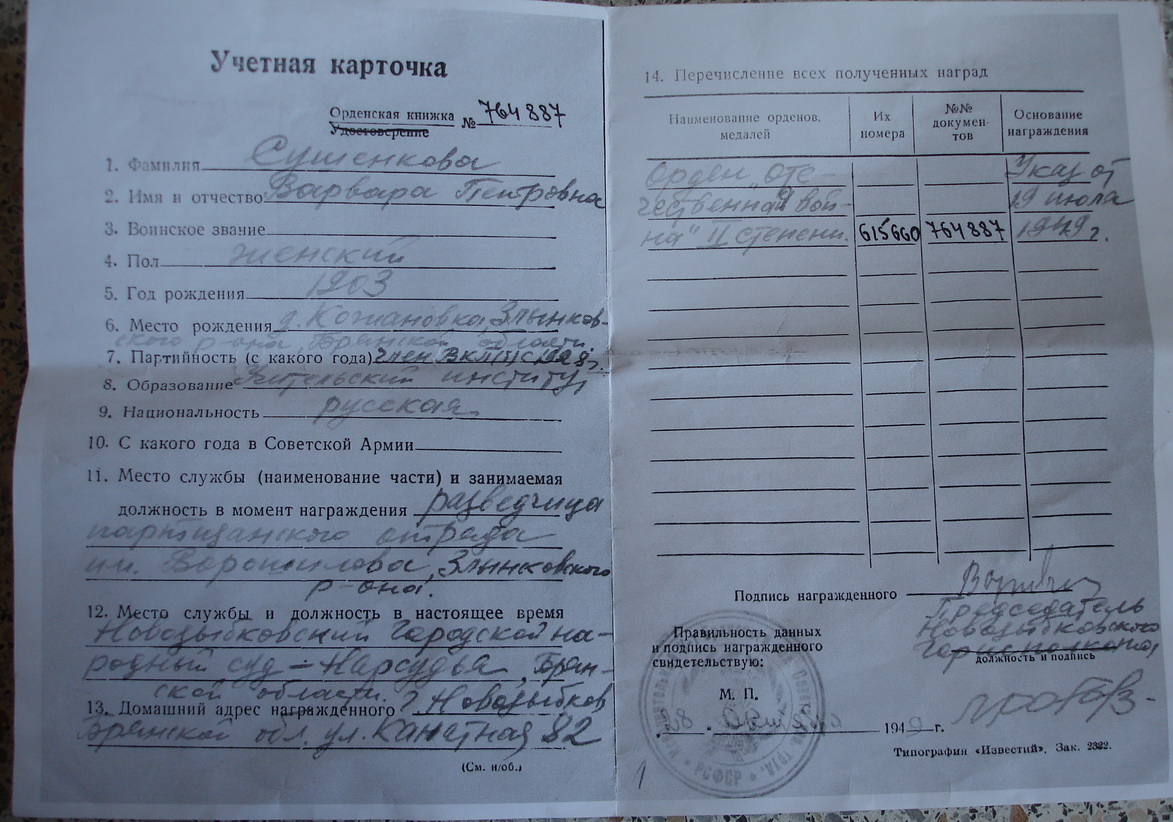 Учетная карточка
Орденская книжка
Удостоверение
№ 764887
1. Фамилия Сушенкова
2. Имя и отчество Варвара Петровна
3. Воинское звание
4. Пол женский
5. Год рождения 1903
6. Место рождения д. Кожановка, Злынков-
ского р-она, Брянской области
7. Партийность (с какого года) член ВКП(б)
8. Образование Учительский институт
9. Национальность русская
10. С какого года в Советской Армии
11. Место службы (наименование части) и занимаемая
должность в момент награждения разведчица
партизанского отряда
им. Ворошилова, Злынковского
р-она.
12. Место службы и должность в настоящее время
Новозыбковский городской на-
родный суд – Нарсудья, Брян-
ской области.
13. Домашний адрес награжденного г. Новозыбков
Брянской обл. ул. Канатная 82
(См. н/об.)
14. Перечисление всех полученных наград
Наименование орденов, медалей
Их номера
№№ документов
Основание награждения
Орден „Оте-
чественная вой-
на" II степени.
615660
764887
Указ от
19 июля
1949 г.
Подпись награжденного
Председатель
Новозыбковского
Горисполкома
должность и подпись
Правильность данных
и подпись награжденного
свидетельствую:
М. П.
194 г.
Типография «Известий». Зак. 2322.
РСФСР
1